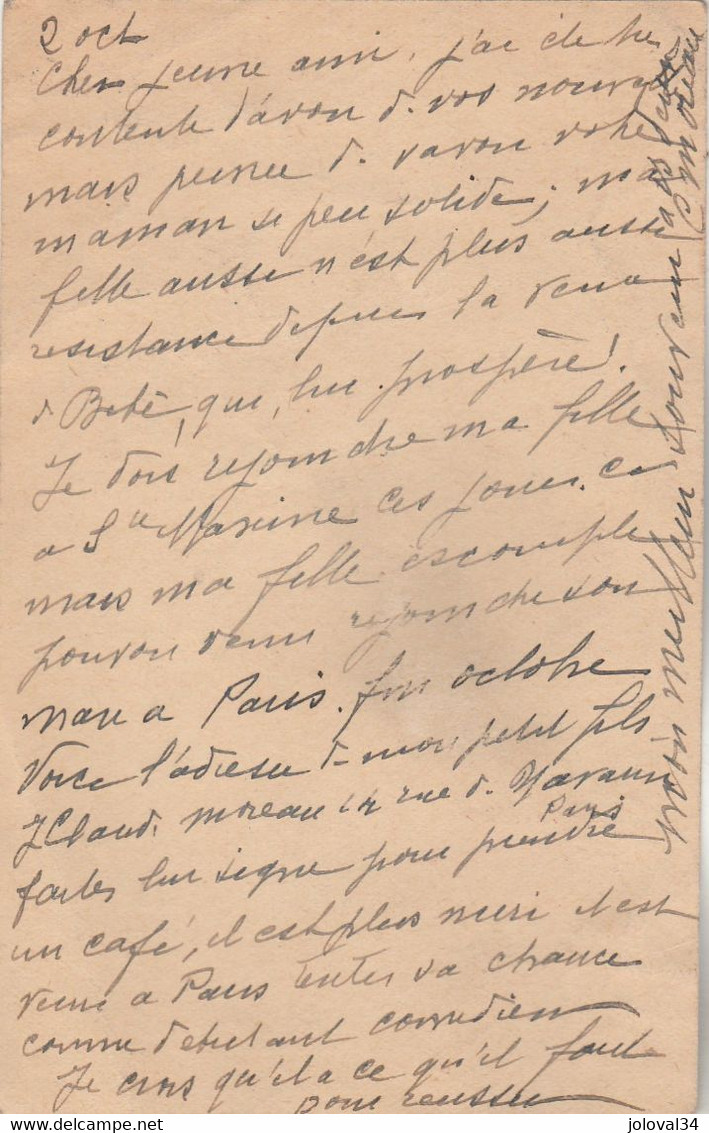 2 oct
Cher jeune ami, j'ai été très
contente d'avoir d. vos nouvelles
mais peinée d. savoir votre
maman si peu solide; ma
fille aussi n'est plus aussi
resistance depuis la venue
d Bébé, qui, lui prospère!
Je dois rejoindre ma fille
a Ste Maxime ces jours ci
mais ma fille escompte
pouvoir venir rejoindre son
mari a Paris fin octobre
Voici l'adresse d. mon petit fils
J Claud. Moreau 14 rue d.
Paris
faites lui signe pour prendre
un café, il est plus muri et est
venu a Paris tenter sa chance
comme debutant comedien
Je crois qu'il a ce qu'il faut
pour reussir
mon meilleur souvenir a
Moreau
joloval34
www.delcampe.net